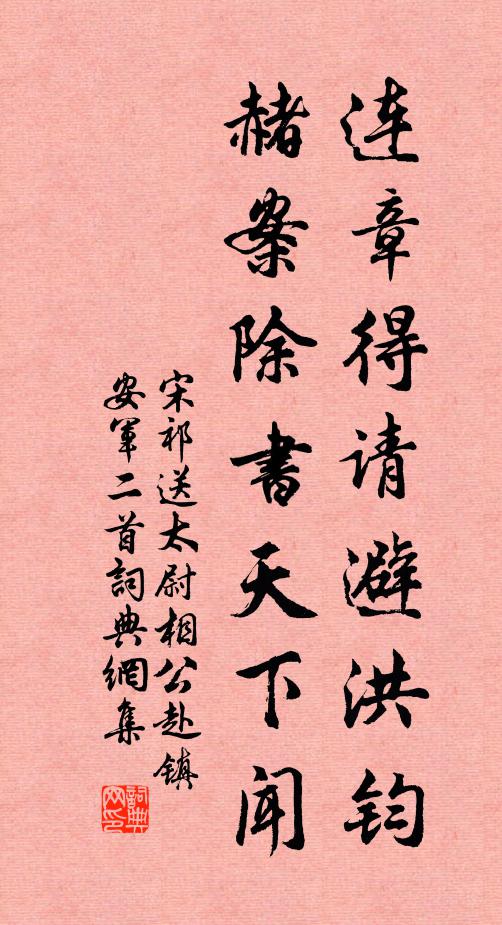 连章得请避洪钧
赭案除书天下闻
宋祁送太尉相公赴镇
安军二首詞典網集
詞典网印